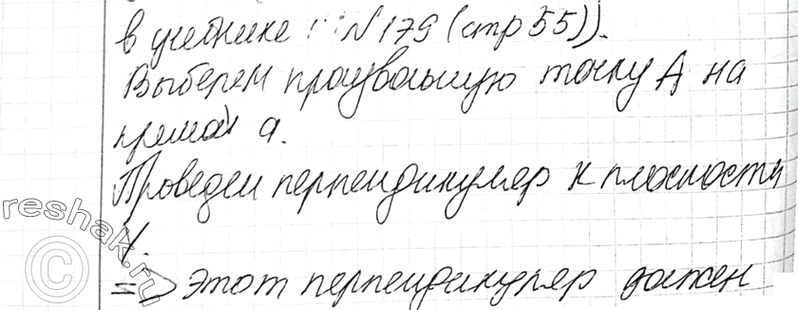 в учебнике: №179 (стр 55)).
Выберем произвольную точку A на
прямой a.
Проведем перпендикуляр к плоскости
γ.
=> Этот перпендикуляр должен
reshak.ru